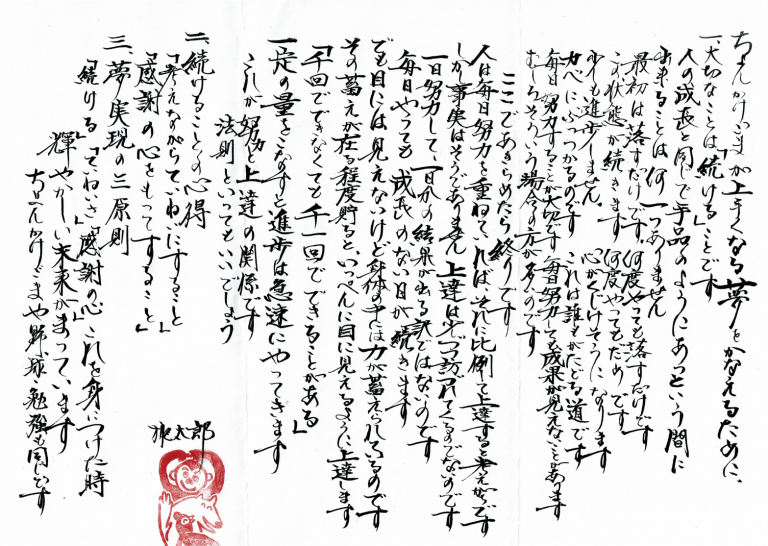 ちょんかけごまが上手くなる夢をかなえるために、
一、大切なことは「続ける」ことです
人の成長と同じで手品のようにあっという間に
出来ることは何一つありません
最初は落すだけです。何度やっても落すだけです
この状態が続きます 何度やってもだめです
少しも進歩しません 心がくじけそうになります
カベにぶつかるのです これは誰もがたどる道です
毎日努力することが大切です 毎日努力しても成果が見えないことがあります
むしろそういう場合の方が多いのです
ここであきらめたら終りです
人は毎日努力を重ねて、いれば それに比例して上達すると考えがちです
しかし事実はそうでありません 上達は少しづつ訪れてくるのでないのです
一日努力して、一日分の結果が出る訳ではないのです
毎日やっても成長のない日が続きます
でも目には見えないけど身体の中には力が蓄えられているのです
その蓄えが在る程度貯ると、いっぺんに目に見えるように上達します
「千回でできなくても千一回でできることがある」
一定の量をこなすと進歩は急速にやってきます
これが努力と上達の関係です
法則といってもいいでしょう
二、続けることの心得
「考えながらていねいにすること」
「感謝の心をもってすること」
三、夢実現の三原則
「続ける」「ていねいさ」「感謝の心」これを身につけた時
輝やかしい未来がまっています
ちょんかけごまや野球・勉強も同じです
旅太郎